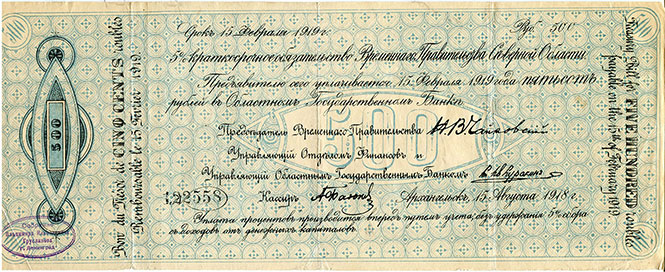 Срокъ 15 Февраля 1919 г. Руб. 500
5% краткосрочное обязательство Временнаго Правительства Северной Области.
Предъявителю сего уплачивается 15 Февраля 1919 года пятьсотъ
рублей въ Областномъ Государственномъ Банкѣ
Председатель Временнаго Правительства Н В Чайковский
Управляющій Отделомъ Финансовъ и
Управляющій Областнымъ Государственнымъ Банкомъ
22558 Кассиръ Архангельскъ, 15 Августа 1918 г.
Уплата процентовъ производится впередъ путемъ учета, безъ удержанія 5% сбора
съ доходовъ отъ денежныхъ капиталовъ.
500
500
Bon du Trésor de CINQ CENTS roubles
Remboursable le 15 Février 1919.
Treasury Bill of FIVE HUNDRED roubles
payable on the 15th of February 1919
Владимира
г. Ленинград